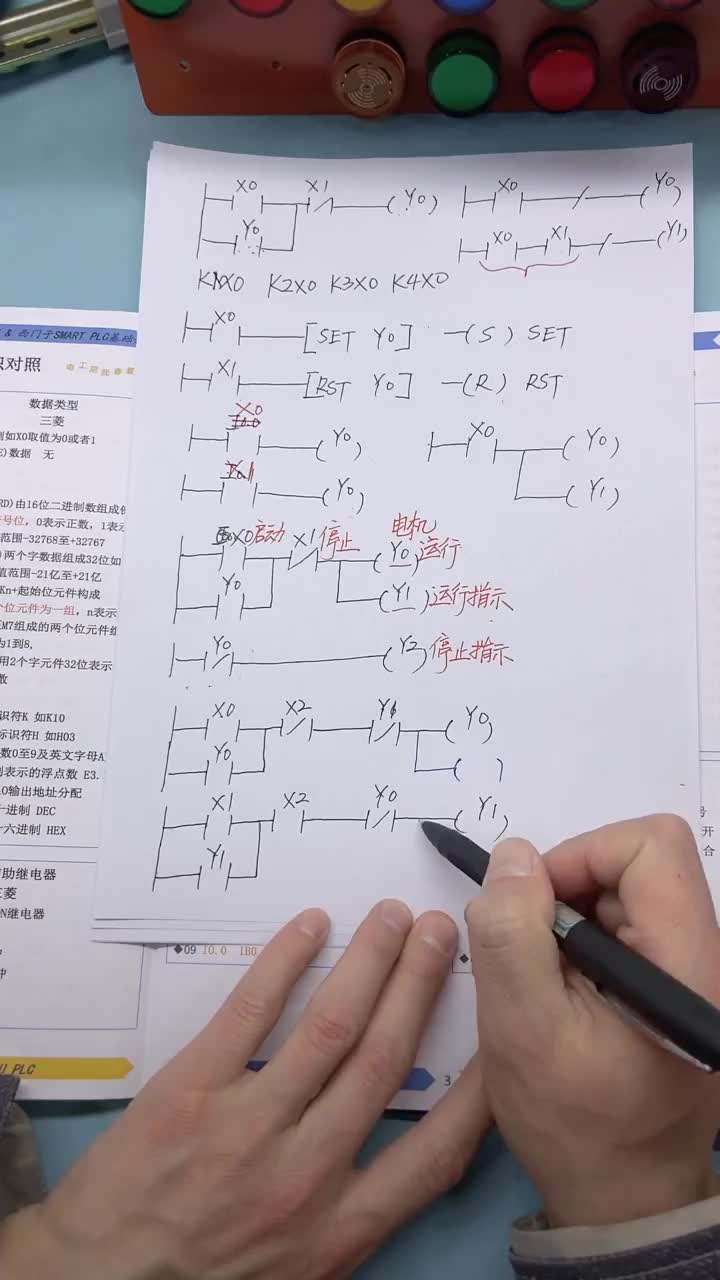 X0 X1 (Y0) X0 (Y0)
Y0 X0 X1 (Y1)
K1X0 K2X0 K3X0 K4X0
X0 [SET Y0] (S) SET
X1 [RST Y0] (R) RST
X0
(Y0) X0 (Y0)
(Y0) (Y1)
X0启动 X1停止 电机
(Y0)运行
Y0 (Y1)运行指示
Y0 (Y2)停止指示
X0 X2 (Y0)
Y0 ( )
X1 X2 Y0 (Y1)
Y1
& 西门子SMART PLC基础
识对照
数据类型
三菱
如X0取值为0或者1
数据 无
RD)由16位二进制数组成
号位，0表示正数，1表
范围-32768至+32767
两个字数据组成32位如
值范围-21亿至+21亿
Kn+起始位元件构成
个位元件为一组，n表示
M7组成的两个位元件
为1到8,
用2个字元件32位表示
数
识符K 如K10
标识符H 如H03
数0至9及英文字母A
表示的浮点数 E3.
输出地址分配
进制 DEC
十六进制 HEX
助继电器
三菱
N继电器
冲
◆09 I0.0 IB0
U PLC
3
号
合